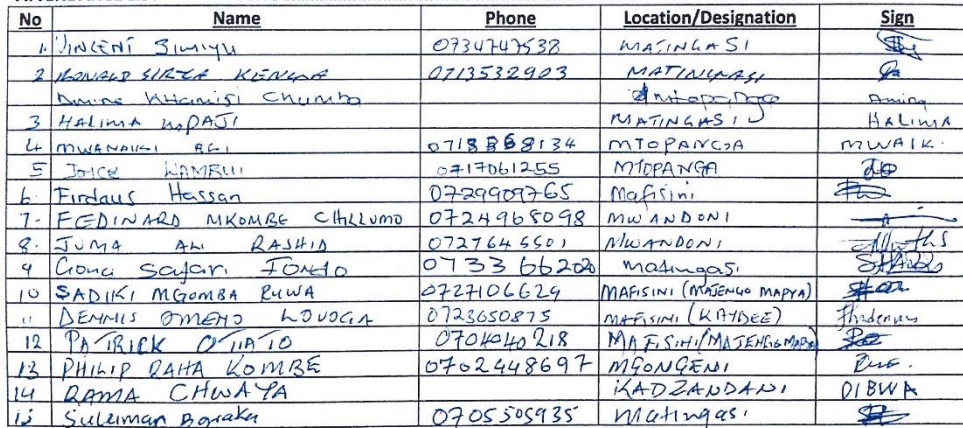 No Name Phone Location/Designation Sign
1. VINCENT SIMIYU 0734747538 MATINGASI
2 RONALD SIRYA KENGAR 0713532903 MATINGASI
Amina Khamisi Chumba Mtopanga Amina
3 HALIMA MPAJI MATINGASI HALIMA
4 MWANAIKI 8134 MTOPANGA MWAIK.
5 JOICE WAMBUI 0717061255 MTOPANGA
6. Firdaus Hassan 0729909765 Mafisini
7. FEDINARD MKOMBE CHILLUMO 0724968098 MWANDONI
8. JUMA ALI RASHID 0727645501 MWANDONI
9 Gona Safari 0733 66202 matingasi
10 SADIKI MGOMBA RUWA 0727106624 MAFISINI (MAJENGO MAPYA)
11 DENNIS OMENO 0723650875 MAFISINI (KAYDEE)
12 PATRICK OTIATO 0704040218 MAFISINI/MAJENGO MAPYA
13 PHILIP DAHA KOMBE 0702448697 MGONGENI
14 RAMA CHWAYA KADZANDANI DIBWA
15 Suleiman Boraka 0705505935 Matingasi